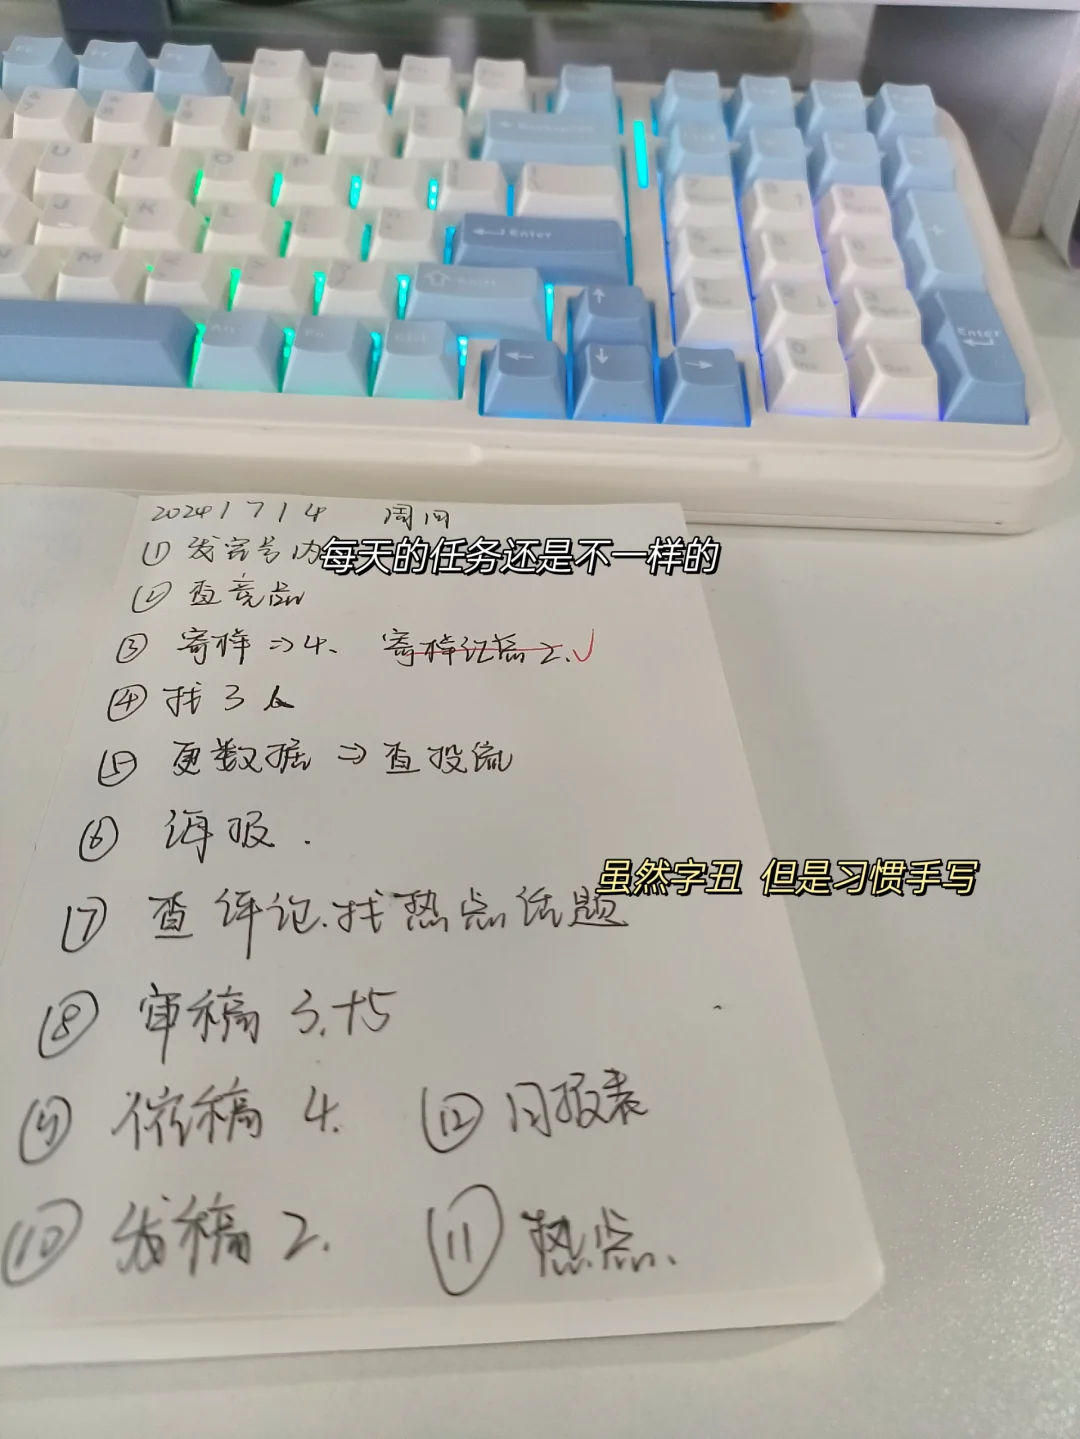 Backspace
U I O P
J K L
Enter
M
Shift
Alt Fn Ctrl
7 8 9
+
Enter
2024/7/4 周四
① 发官号内
每天的任务还是不一样的
② 查竞品
③ 寄样⇒4. 寄样记录2.✓
④ 找3人
⑤ 更数据⇒查投流
⑥ 海报.
⑦ 查评论.找热点话题
虽然字丑 但是习惯手写
⑧ 审稿 3.+5
⑨ 催稿 4. ⑫ 日报表
⑩ 发稿 2. ⑪ 热点.